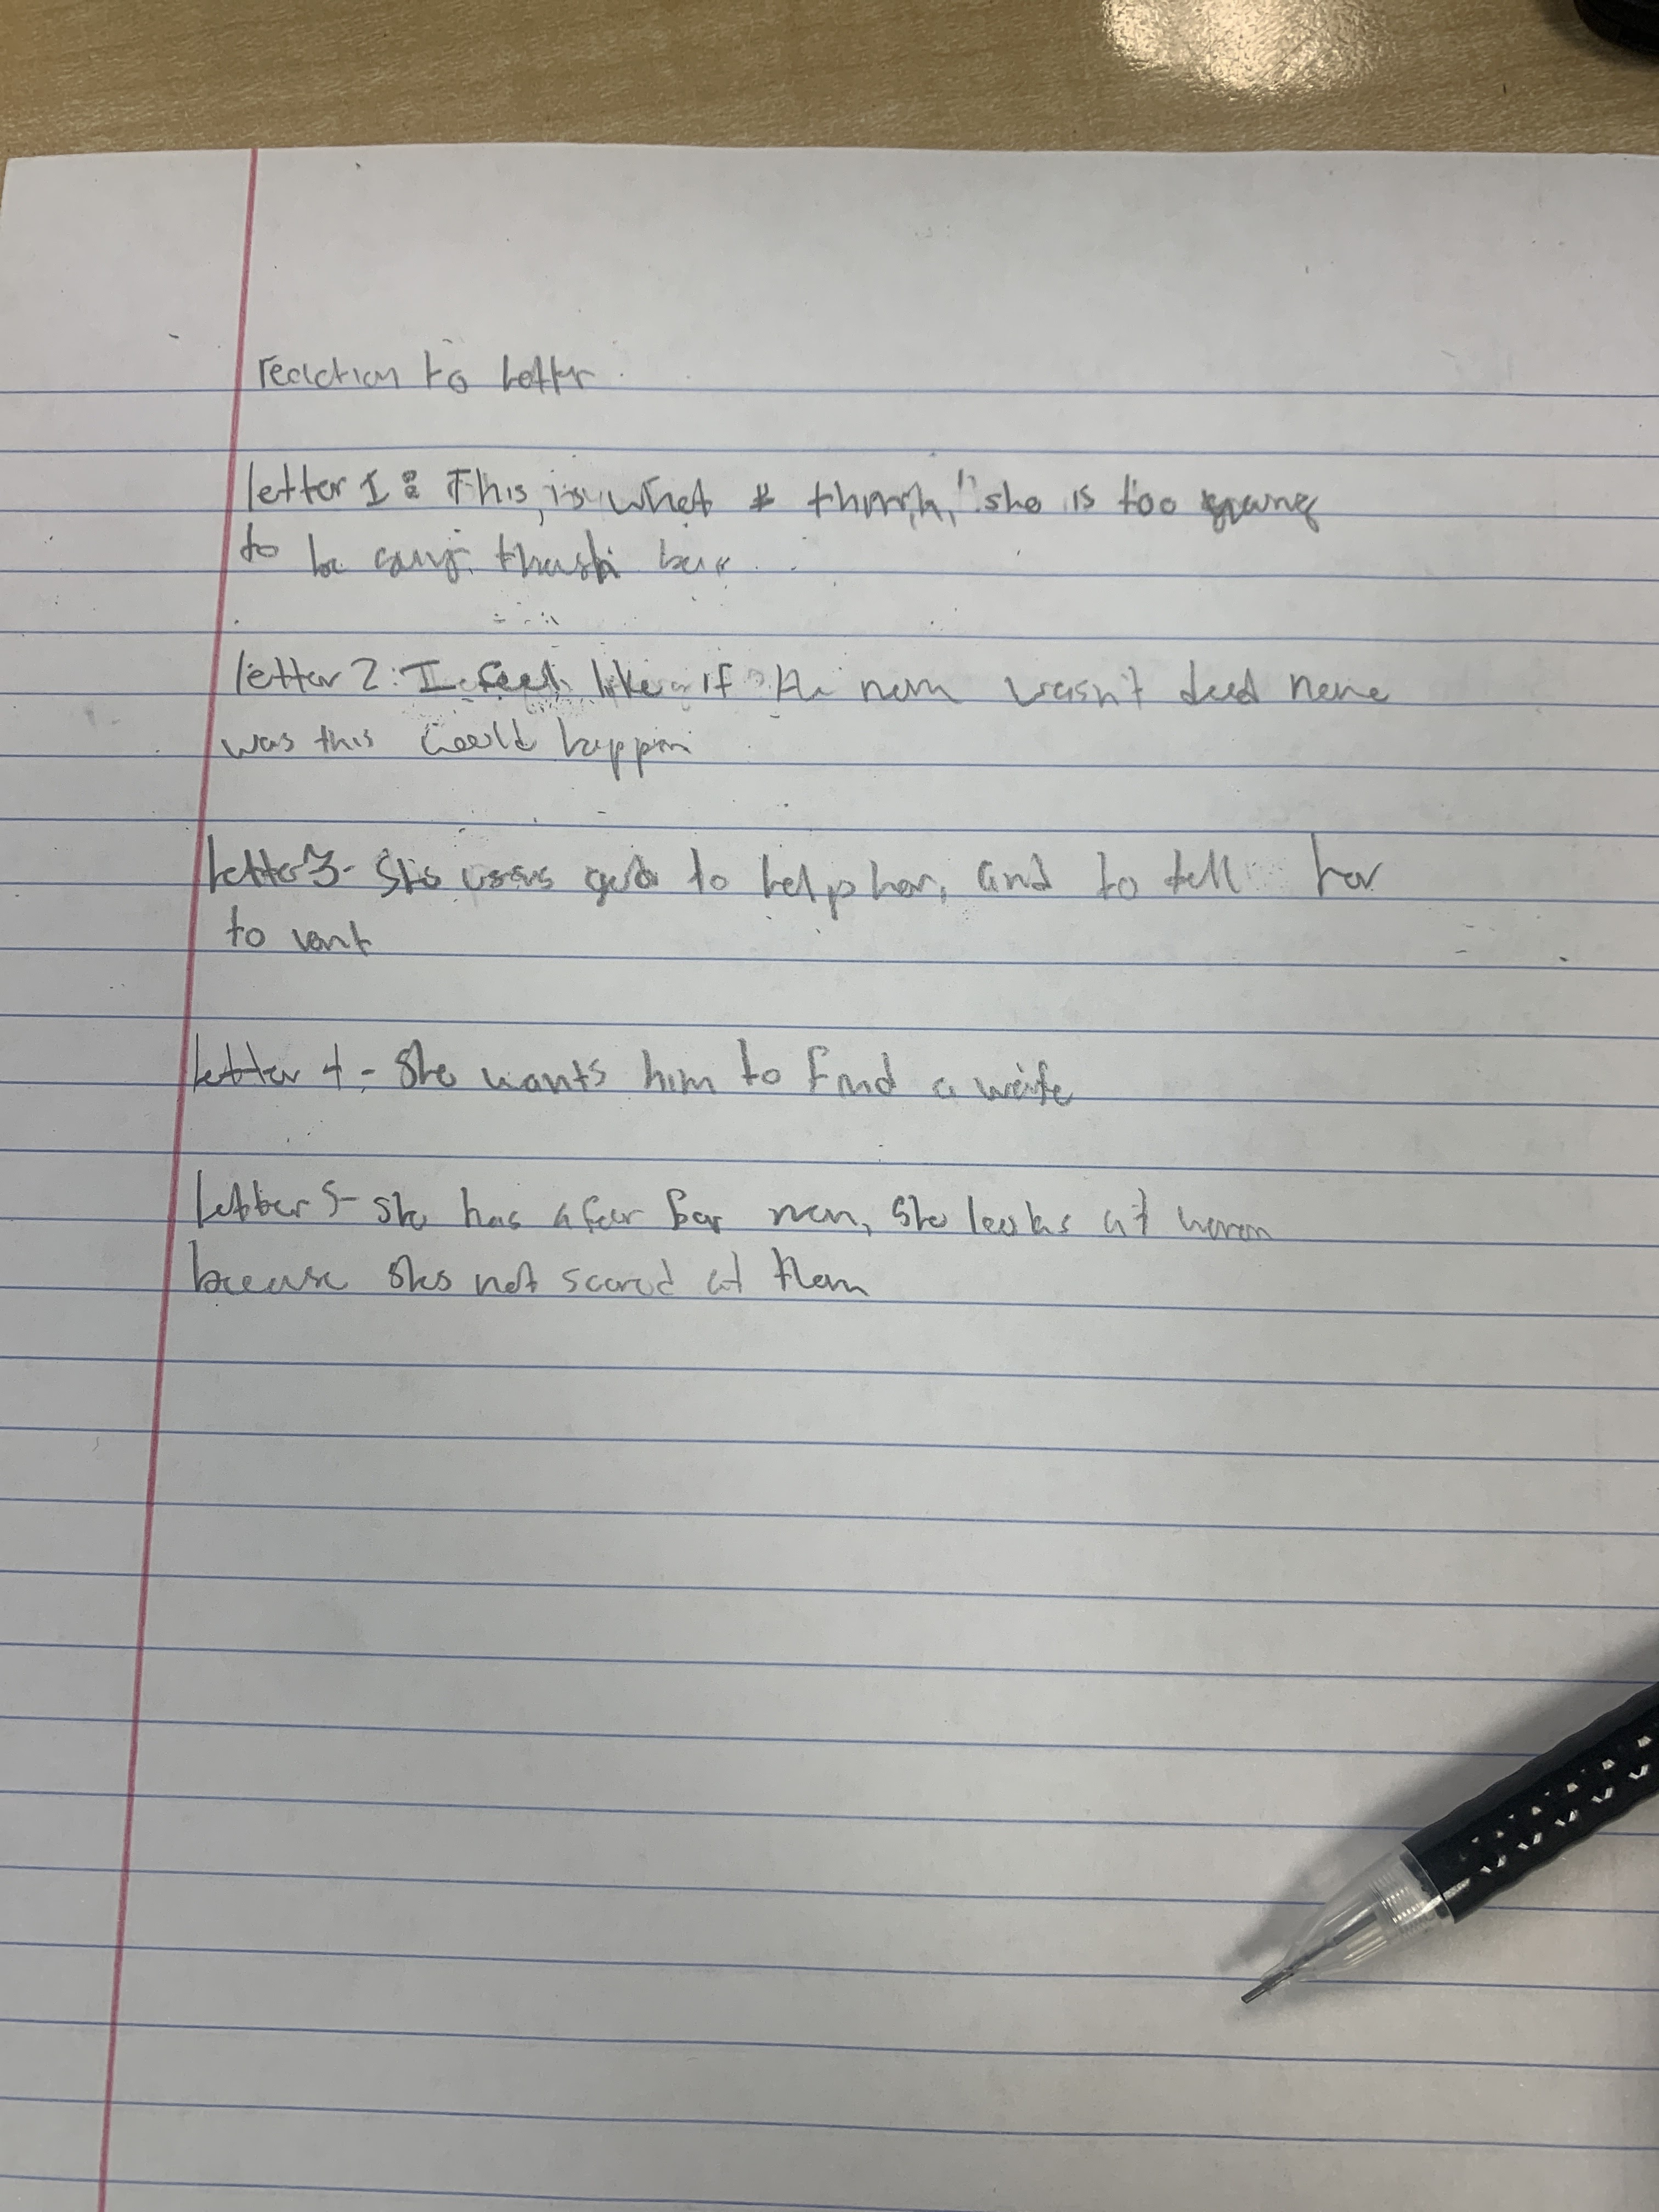 reaction to letter
letter 1: This is what I think, "she is too young
to be
letter 2: I feel like if the mom wasn't dead none
was this could happen
letter 3- She uses god to help her, and to tell her
to
letter 4- She wants him to find a wife
letter 5- She has a fear for men, She looks at women
because shes not scared at them